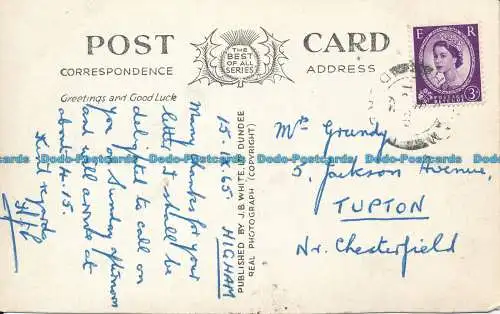 POST CARD
THE
BEST
OF ALL
SERIES
CORRESPONDENCE
ADDRESS
E R
POSTAGE REVENUE
3D
Greetings and Good Luck
15-10-65 HIGHAM
Many thanks for your
letter. I shall be
delighted to call on
you on Sunday afternoon
and will arrive at
about 4.15.
Kind regards
PUBLISHED BY J.B.WHITE, LTD. DUNDEE
REAL PHOTOGRAPH (COPYRIGHT)
Mrs Grundy
5, Jackson Avenue,
TUPTON
Nr. Chesterfield
Dodo-Postcards Dodo-Postcards Dodo-Postcards Dodo-Postcards Dodo-Postcards Dodo-Postcards